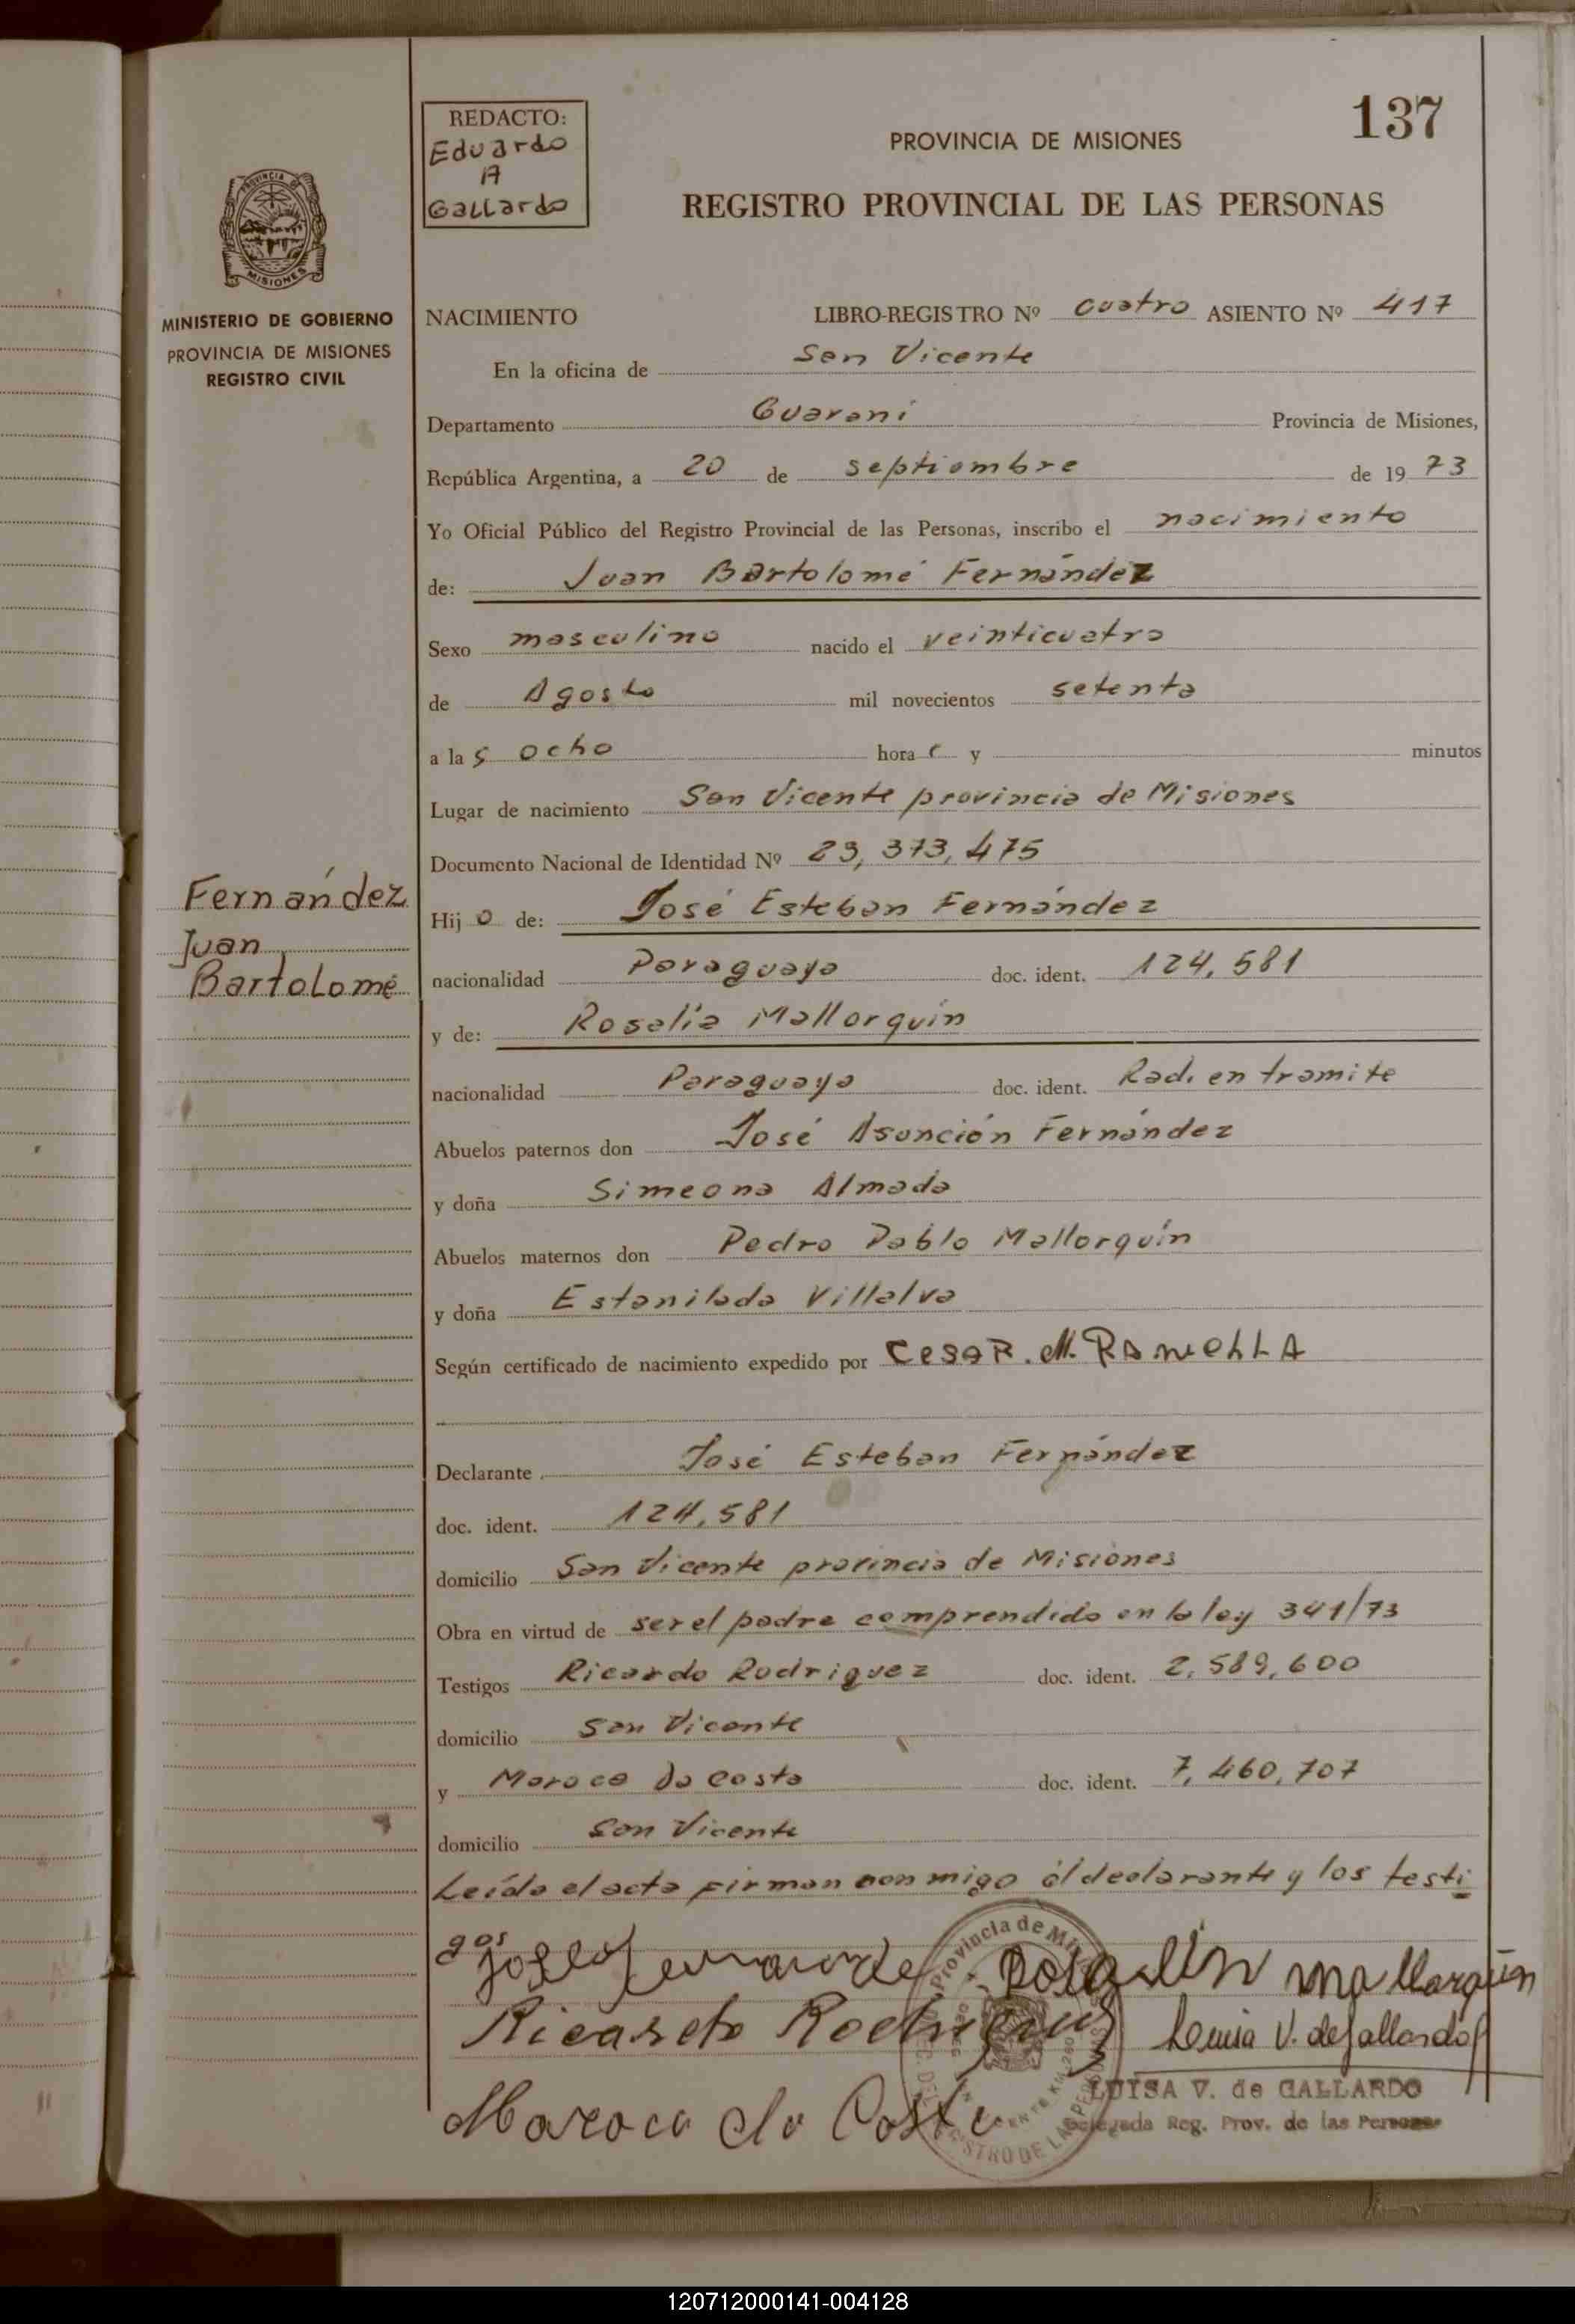 137
REDACTO:
Eduardo
A
Gallardo
PROVINCIA DE MISIONES
REGISTRO PROVINCIAL DE LAS PERSONAS
PROVINCIA DE
MISIONES
MINISTERIO DE GOBIERNO
PROVINCIA DE MISIONES
REGISTRO CIVIL
NACIMIENTO LIBRO-REGISTRO Nº cuatro ASIENTO Nº 417
En la oficina de San Vicente
Departamento Guaraní Provincia de Misiones,
República Argentina, a 20 de septiembre de 19 73
Yo Oficial Público del Registro Provincial de las Personas, inscribo el nacimiento
de: Juan Bartolomé Fernández
Sexo masculino nacido el veinticuatro
de Agosto mil novecientos setenta
a la s ocho hora y minutos
Lugar de nacimiento San Vicente provincia de Misiones
Documento Nacional de Identidad Nº 23,373,475
Fernández
Juan
Bartolomé
Hij o de: José Esteban Fernández
nacionalidad Paraguaya doc. ident. 124,581
y de: Rosalía Mallorquín
nacionalidad Paraguaya doc. ident. Rad. en tramite
Abuelos paternos don José Asunción Fernández
y doña Simeona Almada
Abuelos maternos don Pedro Pablo Mallorquín
y doña Estanilada Villalva
Según certificado de nacimiento expedido por CESAR. M.
Declarante José Esteban Fernández
doc. ident. 124,581
domicilio San Vicente provincia de Misiones
Obra en virtud de ser el padre comprendido en la ley 341/73
Testigos Ricardo Rodriguez doc. ident. 2,589,600
domicilio San Vicente
y Maroca Da Costa doc. ident. 7,460,707
domicilio San Vicente
Leída el acta firman conmigo el declarante y los testi
gos
Rosalin mallorquin
Ricardo Rodriguez Luisa V. de Gallardo
LUISA V. de GALLARDO
Delegada Reg. Prov. de las Personas
Maroca da Costa
120712000141-004128